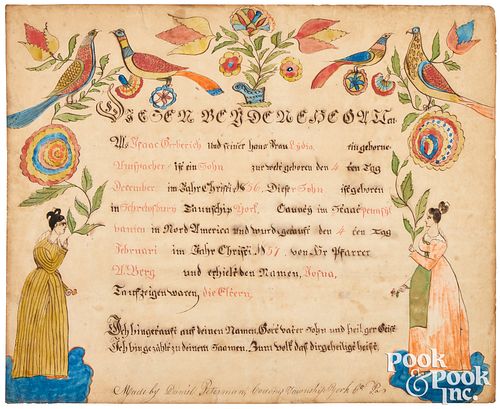 DIESEN BEYDEN EHEGATTen
Als Isaac Gerberich und seiner haus Frau Lydia, ein geborne
Amspacher ist ein Sohn zur welt geboren den 4 ten Tag
December im Jahr Christi 1856, Dieser Sohn ist geboren
in Schrewsbury Taunschip York, Caunty im Staat Pennsyl
vanien in Nord America und wurd getauft den 4 ten Tag
Februari im Jahr Christi 1857 von Hr Pfarrer
A Berg und erhielt den Namen, Josua,
Taufzeigen waren, die Eltern,
Ich bin getauft auf deinen Namen, Gott vater Sohn und heilger Geist
Ich bin gezählt zu deinem Saamen, Zum volk das dir geheiligt heist
Made by Daniel Peterman, Township York Co Pa
Pook
& Pook
Inc.